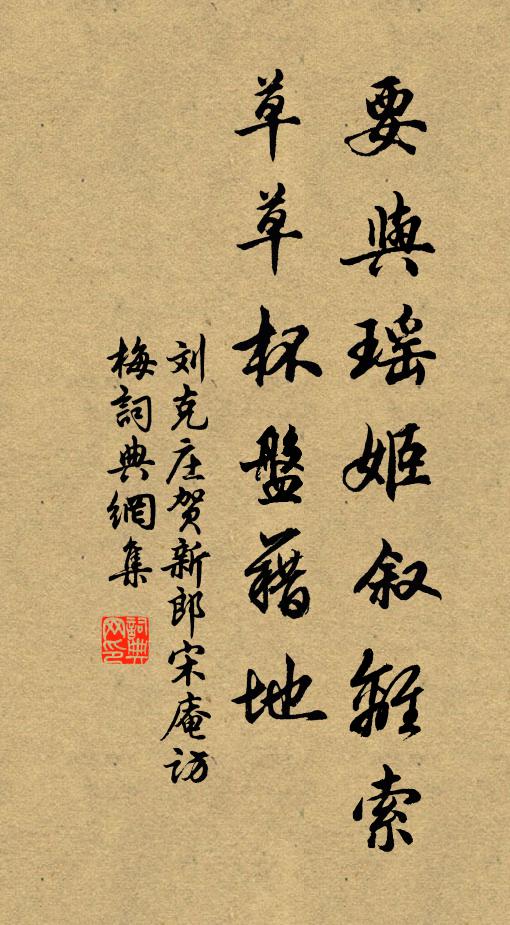 要與瑶姬叙離索
草草杯盤藉地
刘克庄贺新郎宋庵访
梅詞典網集
詞典
网印